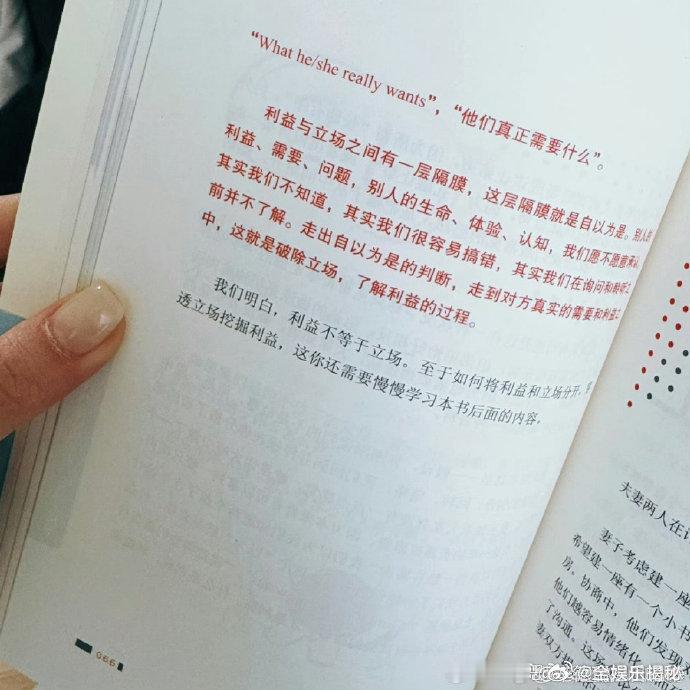 “What he/she really wants”，“他们真正需要什么”。
利益与立场之间有一层隔膜，这层隔膜就是自以为是。别人的
利益、需要、问题，别人的生命、体验、认知，我们愿不愿意承认，
其实我们不知道，其实我们很容易搞错，其实我们在询问和倾听之
前并不了解。走出自以为是的判断，走到对方真实的需要和利益之
中，这就是破除立场，了解利益的过程。
我们明白，利益不等于立场。至于如何将利益和立场分开，
透立场挖掘利益，这你还需要慢慢学习本书后面的内容。
066
夫妻两人在
妻子考虑建一座
希望建一座有一个小书
房。协商中，他们发现
他们越容易情绪化
了沟通。这场
妻双方
@全娱乐揭秘